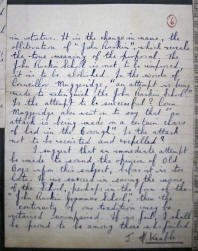 6
in rotation. It is the change in name, the
obliteration of "John Ruskin" which reveals
the true meaning of the proposal. The
John Ruskin School is not to be renamed,
it is to be abolished. In the words of
Councillor Muggeridge "an attempt is being
made to extinguish the John Ruskin School"
Is the attempt to be successful? Coun.
Muggeridge also went on to say that "an
attack is being made on a certain class
of lad in the Borough". Is the attack
not to be resisted and repelled?
I suggest that an immediate attempt
be made to sound the opinion of Old
Boys upon this subject, before it is too
late. If we succeed in saving the name
of the School, perhaps in the form of the
"John Ruskin Grammar School", then the
continuity of our tradition may be
retained unimpaired. If we fail, I shall
be proud to be among those who failed.